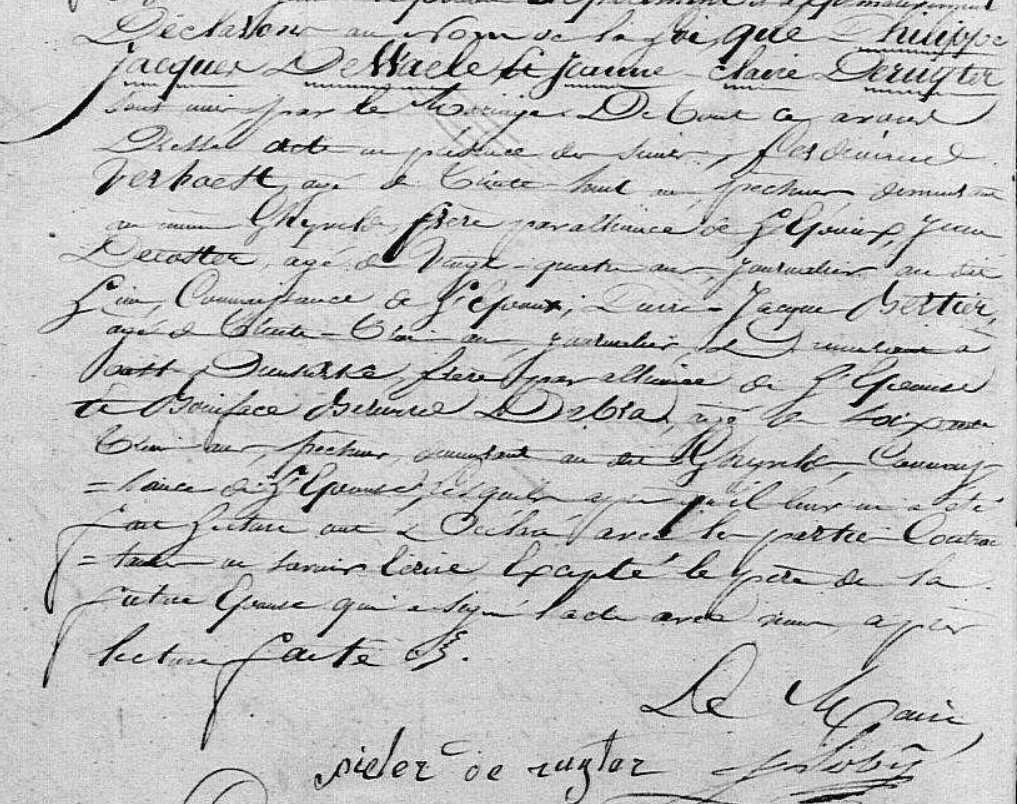 Déclarons au Nom de la Loi, que Philippe
jacques DeWaele et Jeanne-claire Deruyter
sont unis par le Mariage. De tout ce avons
Dressé acte en présence des sieurs, ferdinand
Verhaest, agé de trente-huit ans, pêcheur, demeurant
au même Ghyvelde frère par alliance de L'Epoux, Jean
Decoster, agé de Vingt-quatre ans, journalier au dit
Lieu, Connaissance de L'Epoux; Pierre-Jacques Bertier,
agé de trente-trois ans, journalier, Demeurant à
frère par alliance de L'Epouse
et Boniface agé de soixante
trois ans, pêcheur, demeurant au dit Ghyvelde, Connais-
=sance de L'Epouse, lesquels après qu'il leur en a été
fait lecture ont Déclaré avec les parties Contrac
=tantes ne savoir Ecrire, Excepté le père de la
future Epouse qui a signé l'acte avec nous, après
lecture faite &.
Le Maire
pieter de ruyter